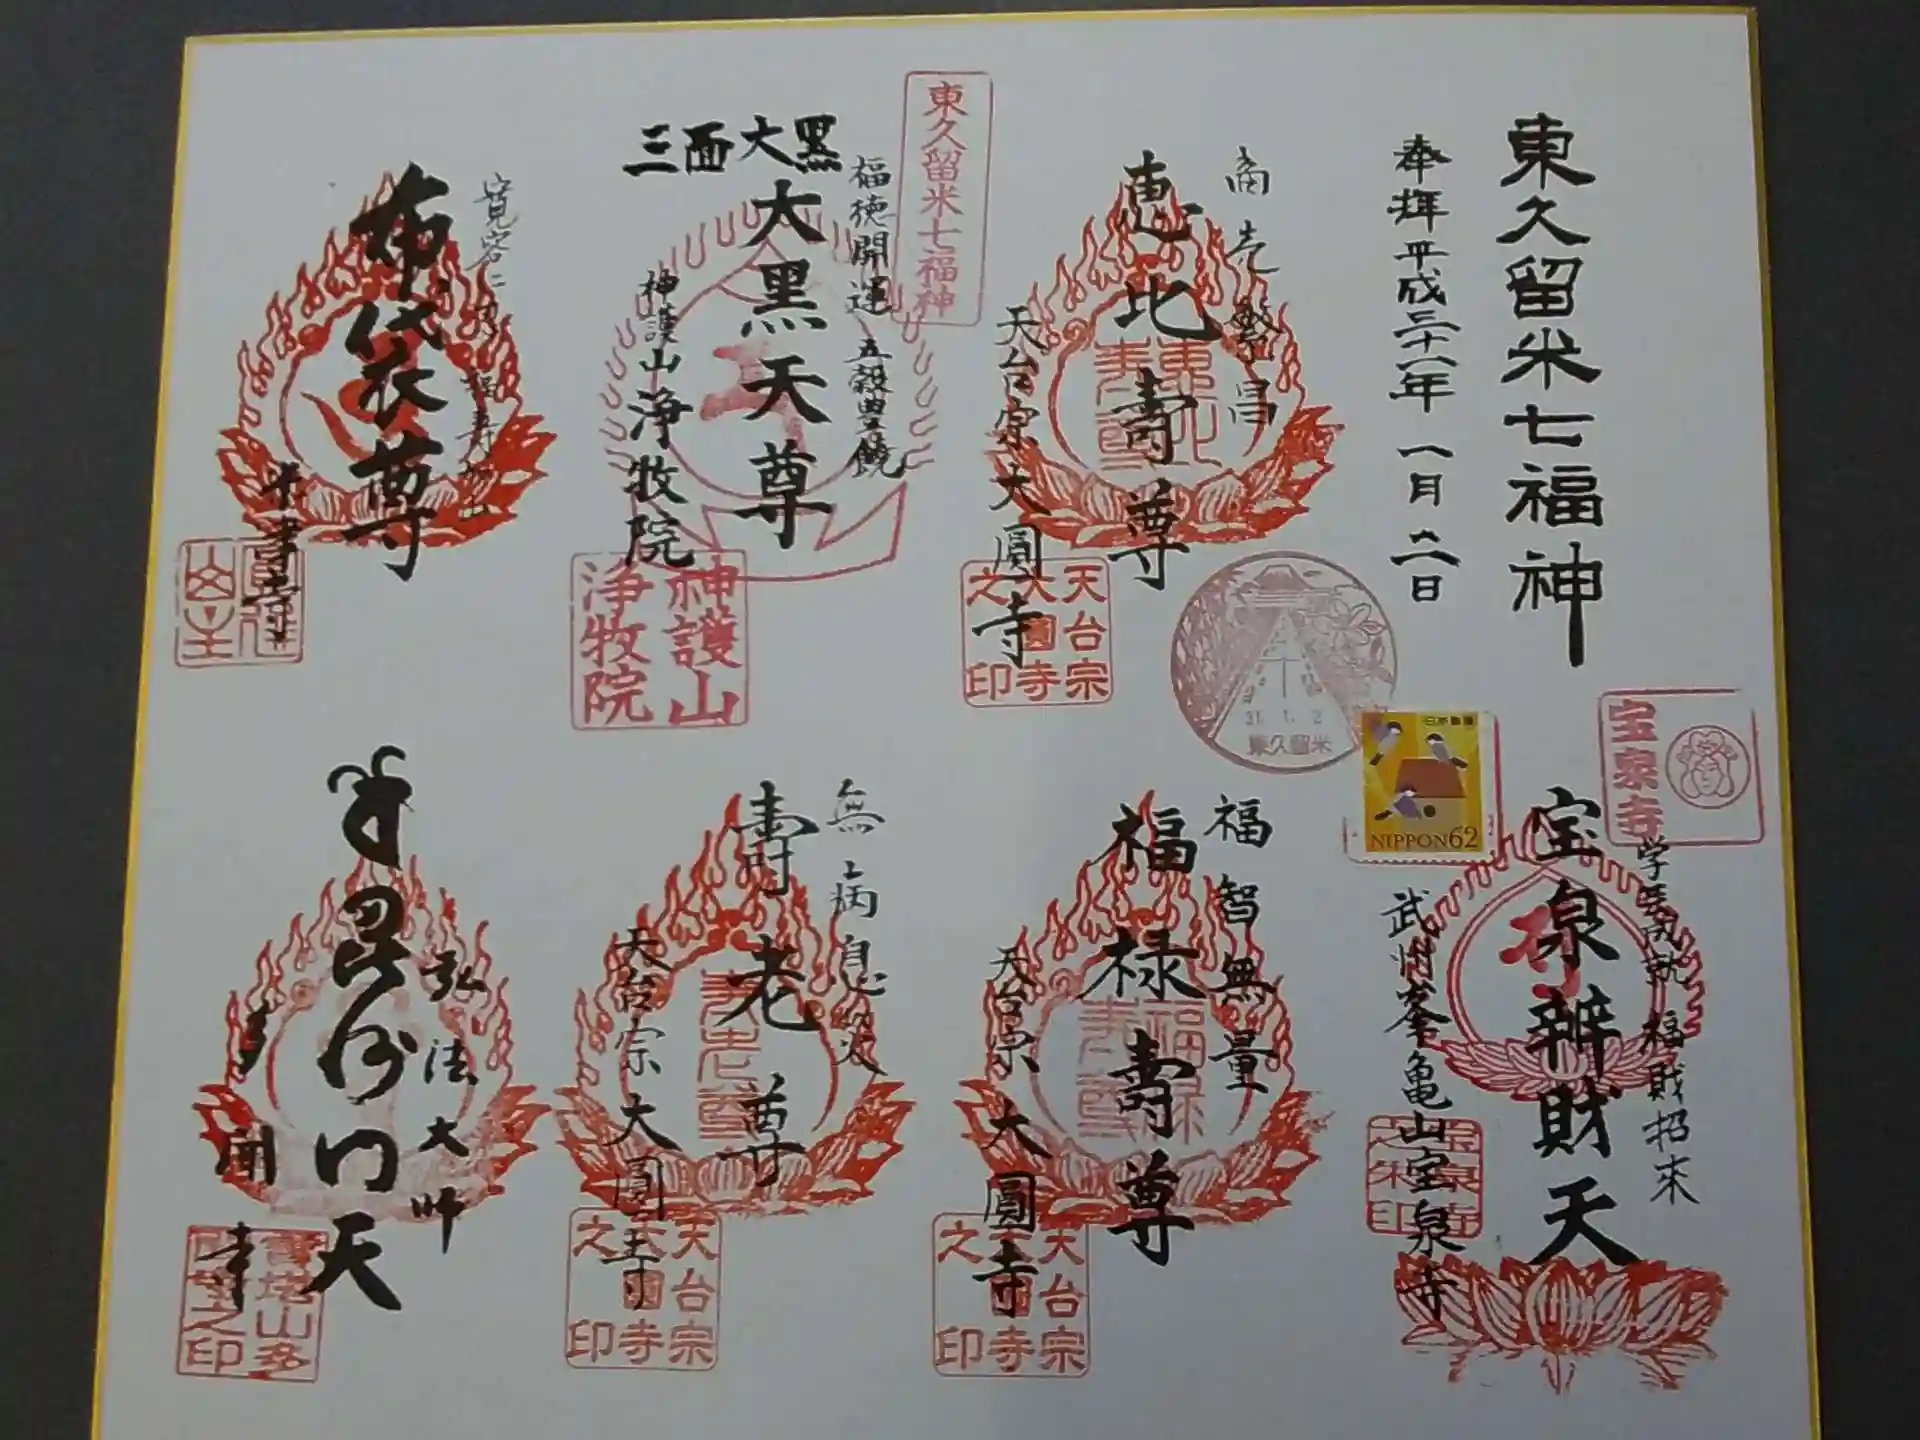 東久留米七福神
奉拝 平成三十一年 一月 二日
商売繁昌
恵比寿尊
天台宗大圓寺
天台宗大圓寺之印
東久留米七福神
福徳開運 五穀豊饒
三面大黒
大黒天尊
神護山浄牧院
神護山浄牧院
布袋尊
米津寺
31.1.2
東久留米
日本郵便
NIPPON62
宝泉寺
学業成就 福財招来
宝泉辨財天
武州峯亀山宝泉寺
福智無量
福禄寿尊
天台宗大圓寺
天台宗大圓寺之印
無病息災
寿老尊
天台宗大圓寺
天台宗大圓寺之印
弘法大師
毘沙門天
多聞寺